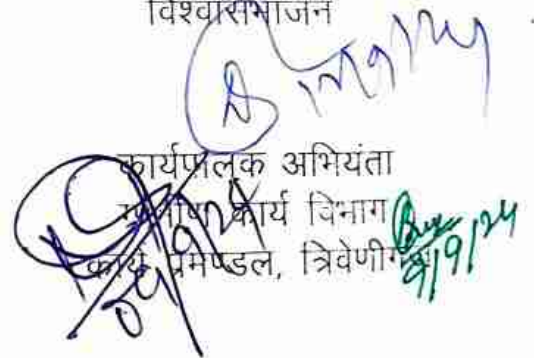 विश्वासभाजन
कार्यपालक अभियंता
ग्रामीण कार्य विभाग
कार्य प्रमण्डल, त्रिवेणीगंज
9/9/24